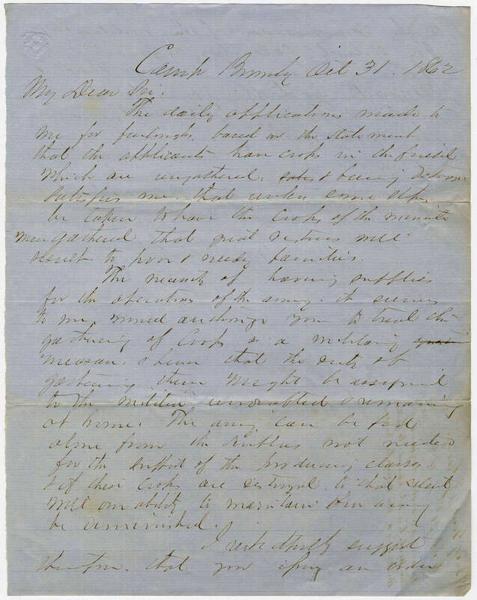 Camp Brindly Oct 31. 1862
My Dear Sir.
The daily applications made to
me for furloughs based on the statement
that the applicants have crops in the field
which are ungathered, & being destroyed
satisfies me that unless some steps
be taken to have the crops of the
men gathered that great distress will
result to poor & needy families.
The necessity of having supplies
for the operations of the army it seems
to me, would authorize you to treat the
gathering of crops as a military
measure & hence that the duty of
gathering them might be assigned
to the militia unenrolled & remaining
at home. The army can be fed
alone from the surplus not needed
for the support of the producing classes
& if these crops are destroyed, to that extent
will our ability to maintain our army
be diminished.
I respectfully suggest
therefore that you issue an order